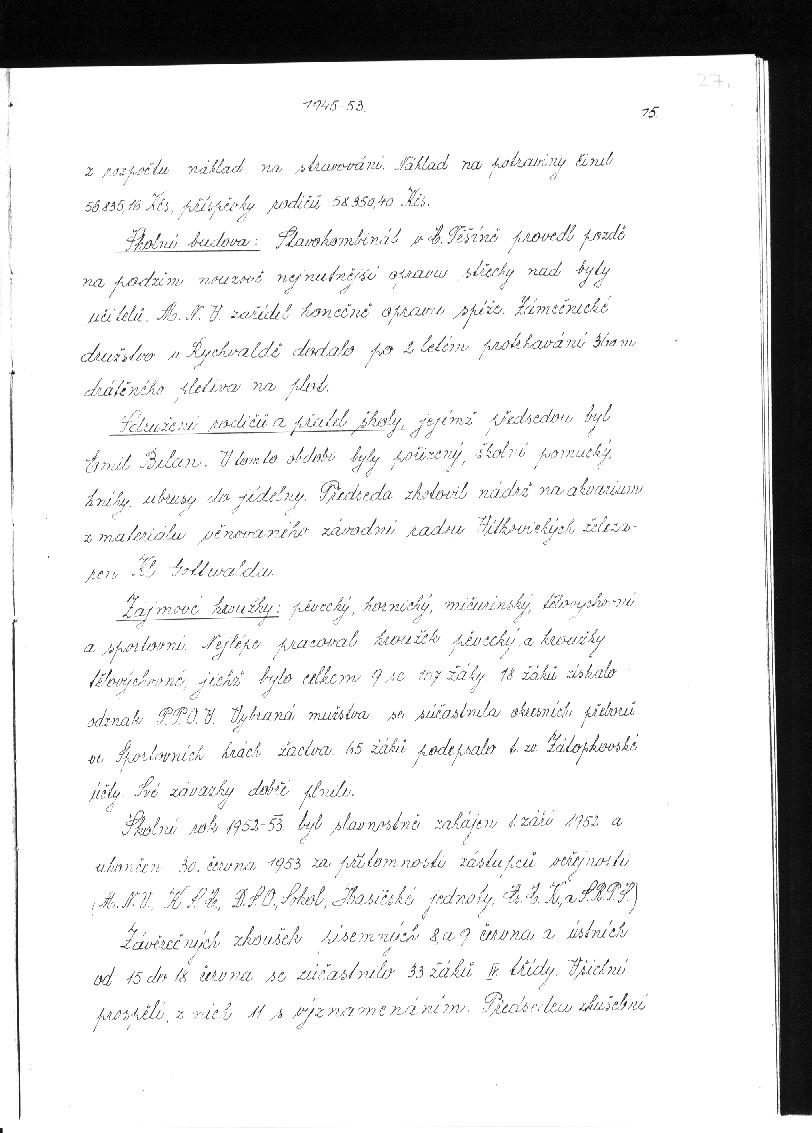 27.
1945-53.
15.
z rozpočtu náklad na stravování. Náklad na potraviny činil
56835,16 Kčs, příspěvky rodičů 58350,40 Kčs.
Školní budova: Stavokombinát v Č. Těšíně provedl pozdě
na podzim nouzově nejnutnější opravu střechy nad byty
učitelů. M. N. V. zařídil konečně opravu spíže. Zámečnické
družstvo v Rychvaldě dodalo po 2 letém protahování
drátěného pletiva na plot.
Sdružení rodičů a přátel školy, jejímž předsedou byl
Emil Bilan. V tomto období byly pořízeny, školní pomůcky,
knihy, ubrusy do jídelny. Předseda zhotovil nádrž na akvarium
z materiálu věnovaného závodní radou Vítkovických železá-
ren Kl. Gottwalda.
Zájmové kroužky: pěvecký, hornický, mičurinský, tělovýchovní
a sportovní. Nejlépe pracoval kroužek pěvecký a kroužky
tělovýchovné, jichž bylo celkem 9 se 107 žáky. 18 žáků získalo
odznak P.P.O.V. Vybraná mužstva se súčastnila okresních přeborů
ve Sportovních hrách žactva. 65 žáků podepsalo t. zv. Zátopkovské
účty. Své závazky dobře plnili.
Školní rok 1952-53 byl slavnostně zahájen 1. září 1952 a
ukončen 30. června 1953 za přítomnosti zástupců veřejnosti
(M. N. V., K. S. Č., D.S.O. Sokol, Hasičské jednoty, Č. Č. K., a S.R.P.Š.)
Závěrečných zkoušek písemných 8. a 9. června a ústních
od 15 do 18 června se zúčastnilo 33 žáků IV. třídy. Všichni
prospěli, z nich 11 s vyznamenáním. Předsedou zkušební